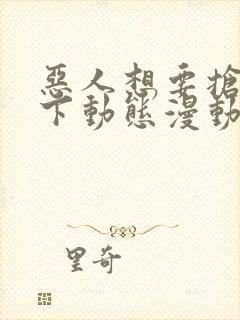 惡人想要搶
下動態漫動
里奇